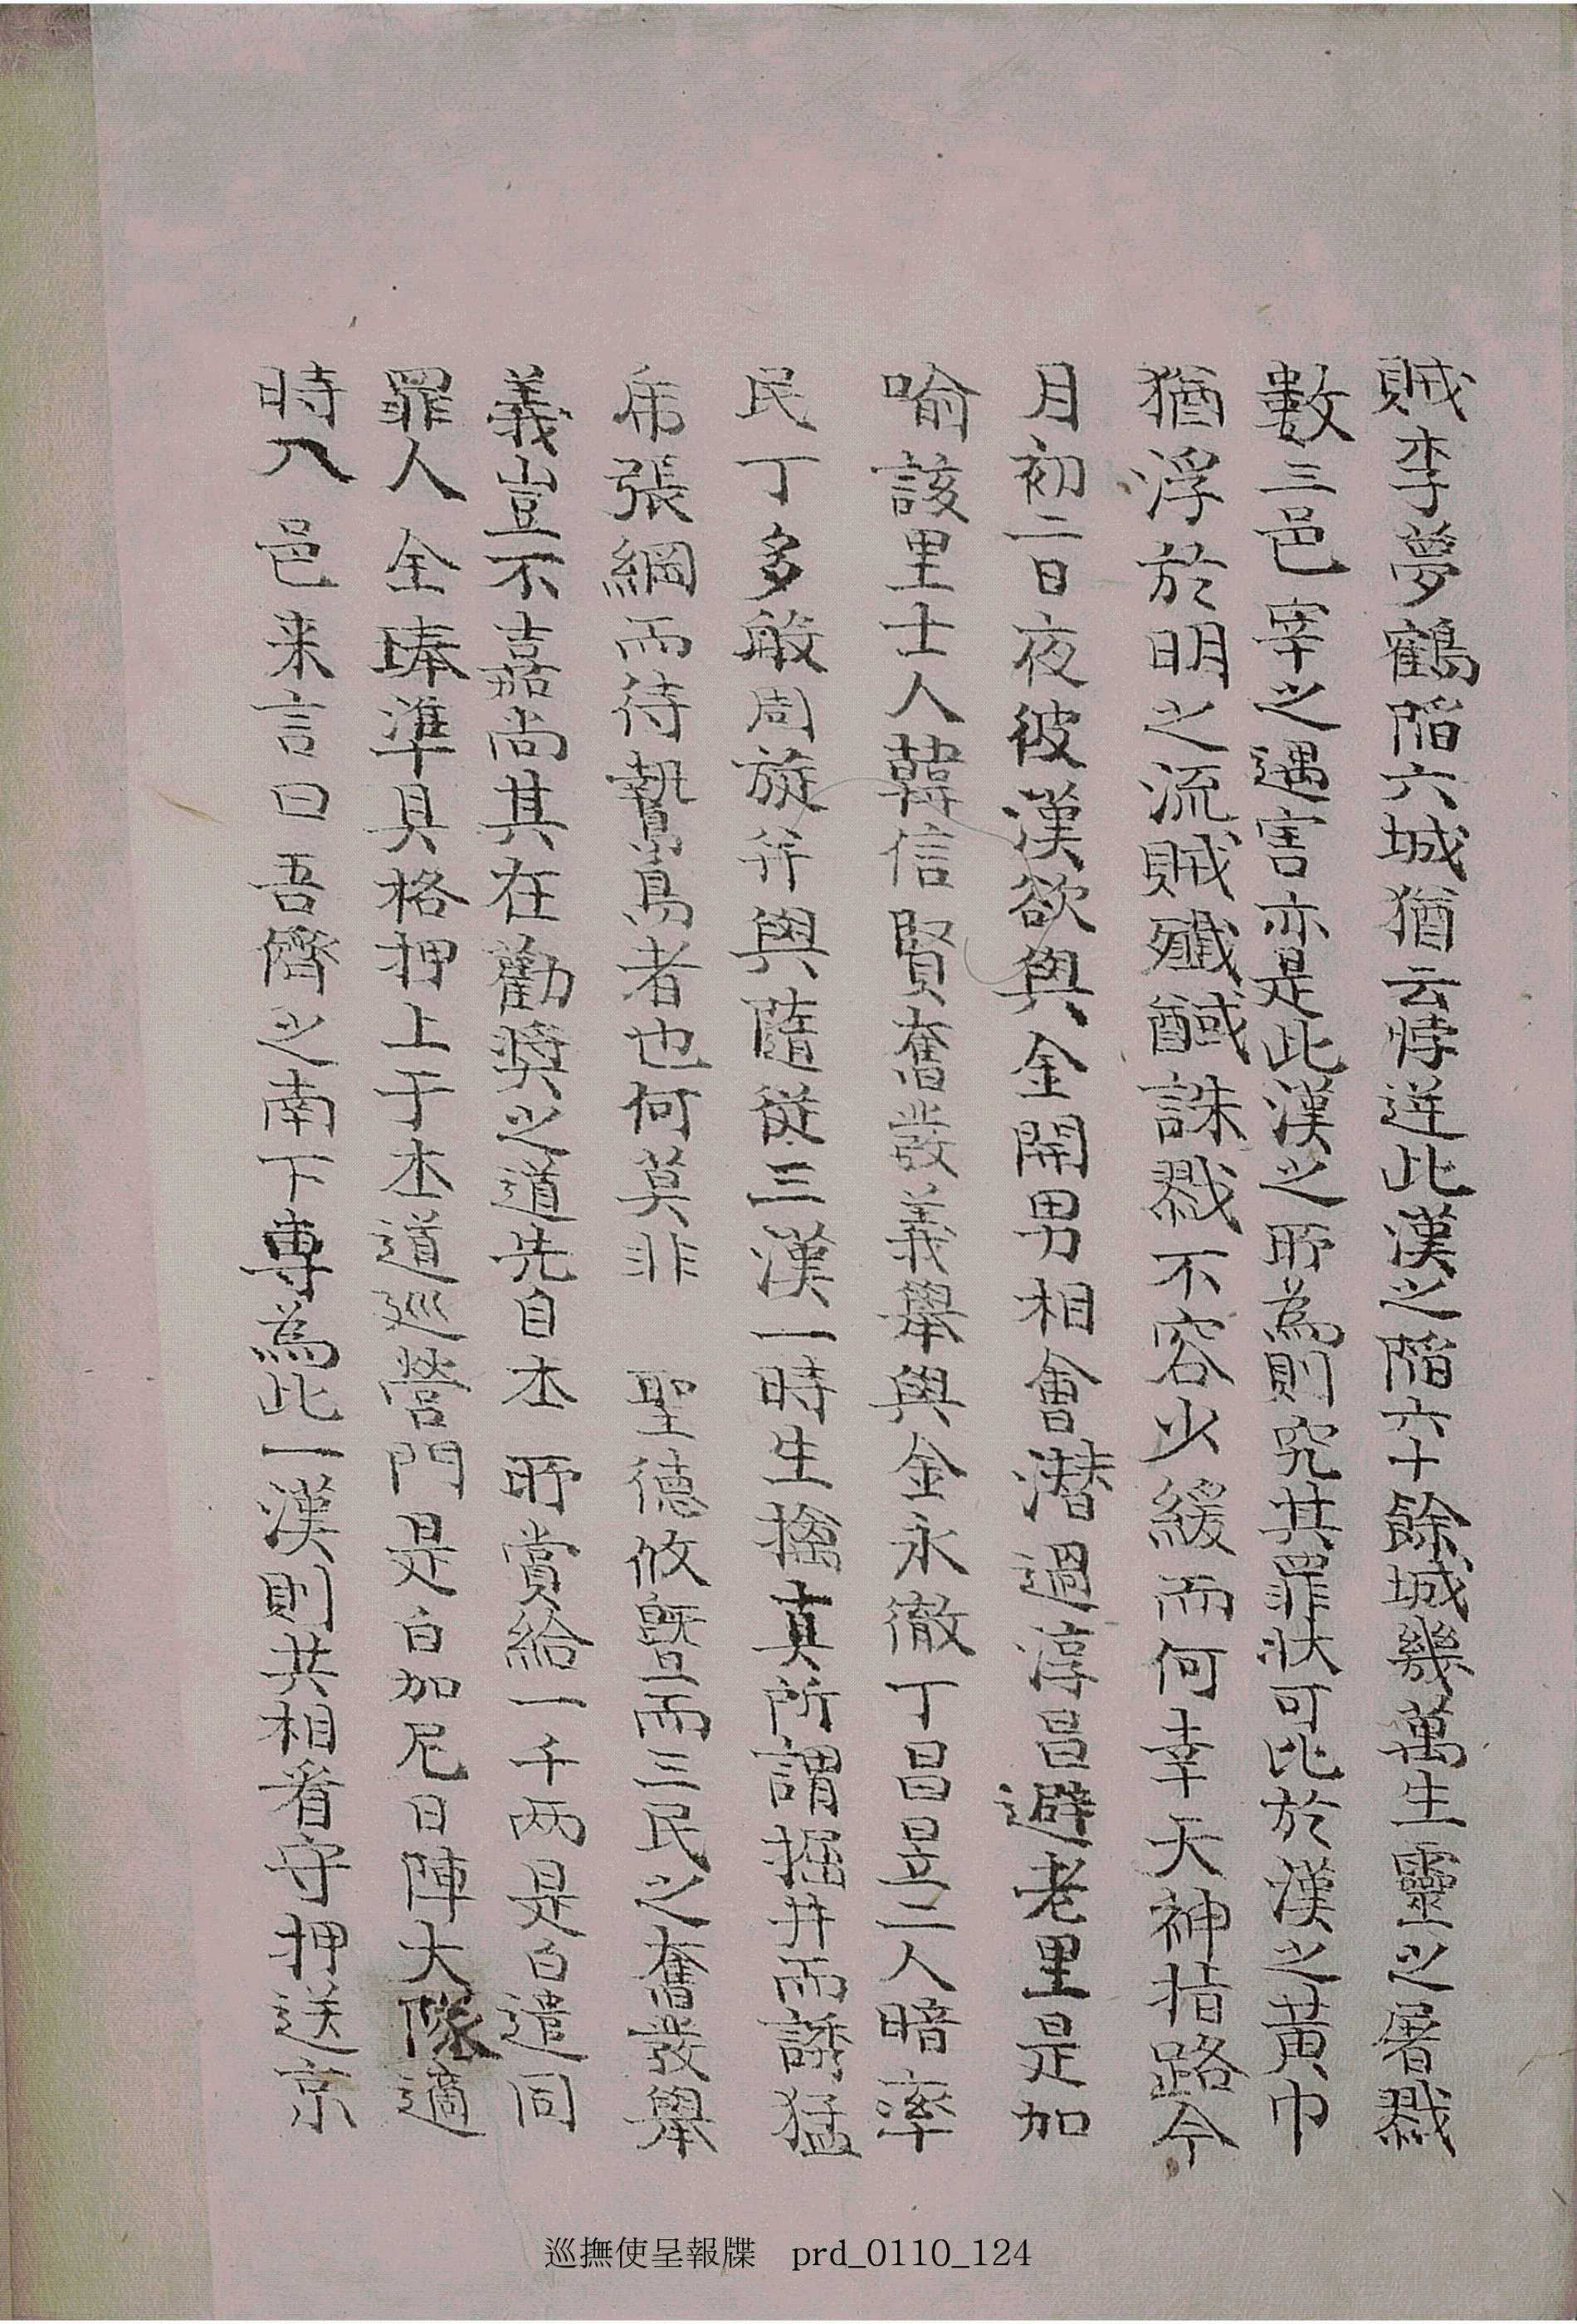 賊李夢鶴陷六城猶云悖逆此漢之陷六十餘城幾萬生靈之屠戮
數三邑宰之遇害亦是此漢之所為則究其罪狀可比於漢之黃巾
猶浮於明之流賊殲馘誅戮不容少緩而何幸天神指路今
月初二日夜彼漢欲與金開男相會潛過淳昌避老里是加
喻該里士人韓信賢奮發義舉與金永徹丁昌昱二人暗率
民丁多敢周旋并與隨從三漢一時生擒真所謂掘井而誘猛
乕張網而待鷙鳥者也何莫非 聖德攸曁而三民之奮發舉
義豈不嘉尚其在勸奬之道先自本所賞給一千兩是白遣同
罪人全琫準具格押上于本道巡營門是白加尼日陣大隊適
時入邑来言曰吾儕之南下專為此一漢則共相看守押送京
巡撫使呈報牒 prd_0110_124